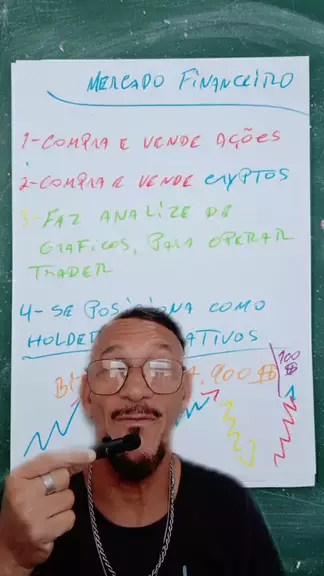 MERCADO FINANCEIRO
1-COMPRA E VENDE AÇÕES
2-COMPRA E VENDE CRYPTOS
3-FAZ ANALIZE DE
GRAFICOS, PARA OPERAR
TRADER
4-SE POSICIONA COMO
HOLDE ATIVOS
.900 $
100
$